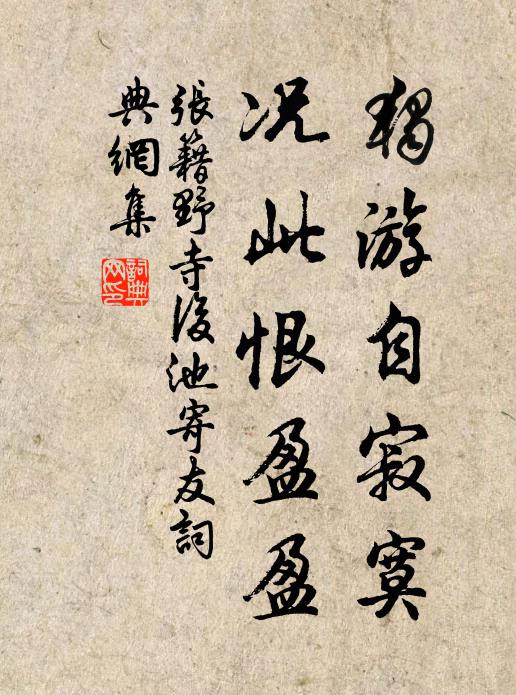 獨游自寂寞
況此恨盈盈
張籍野寺後池寄友詞
典網集
詞典網印